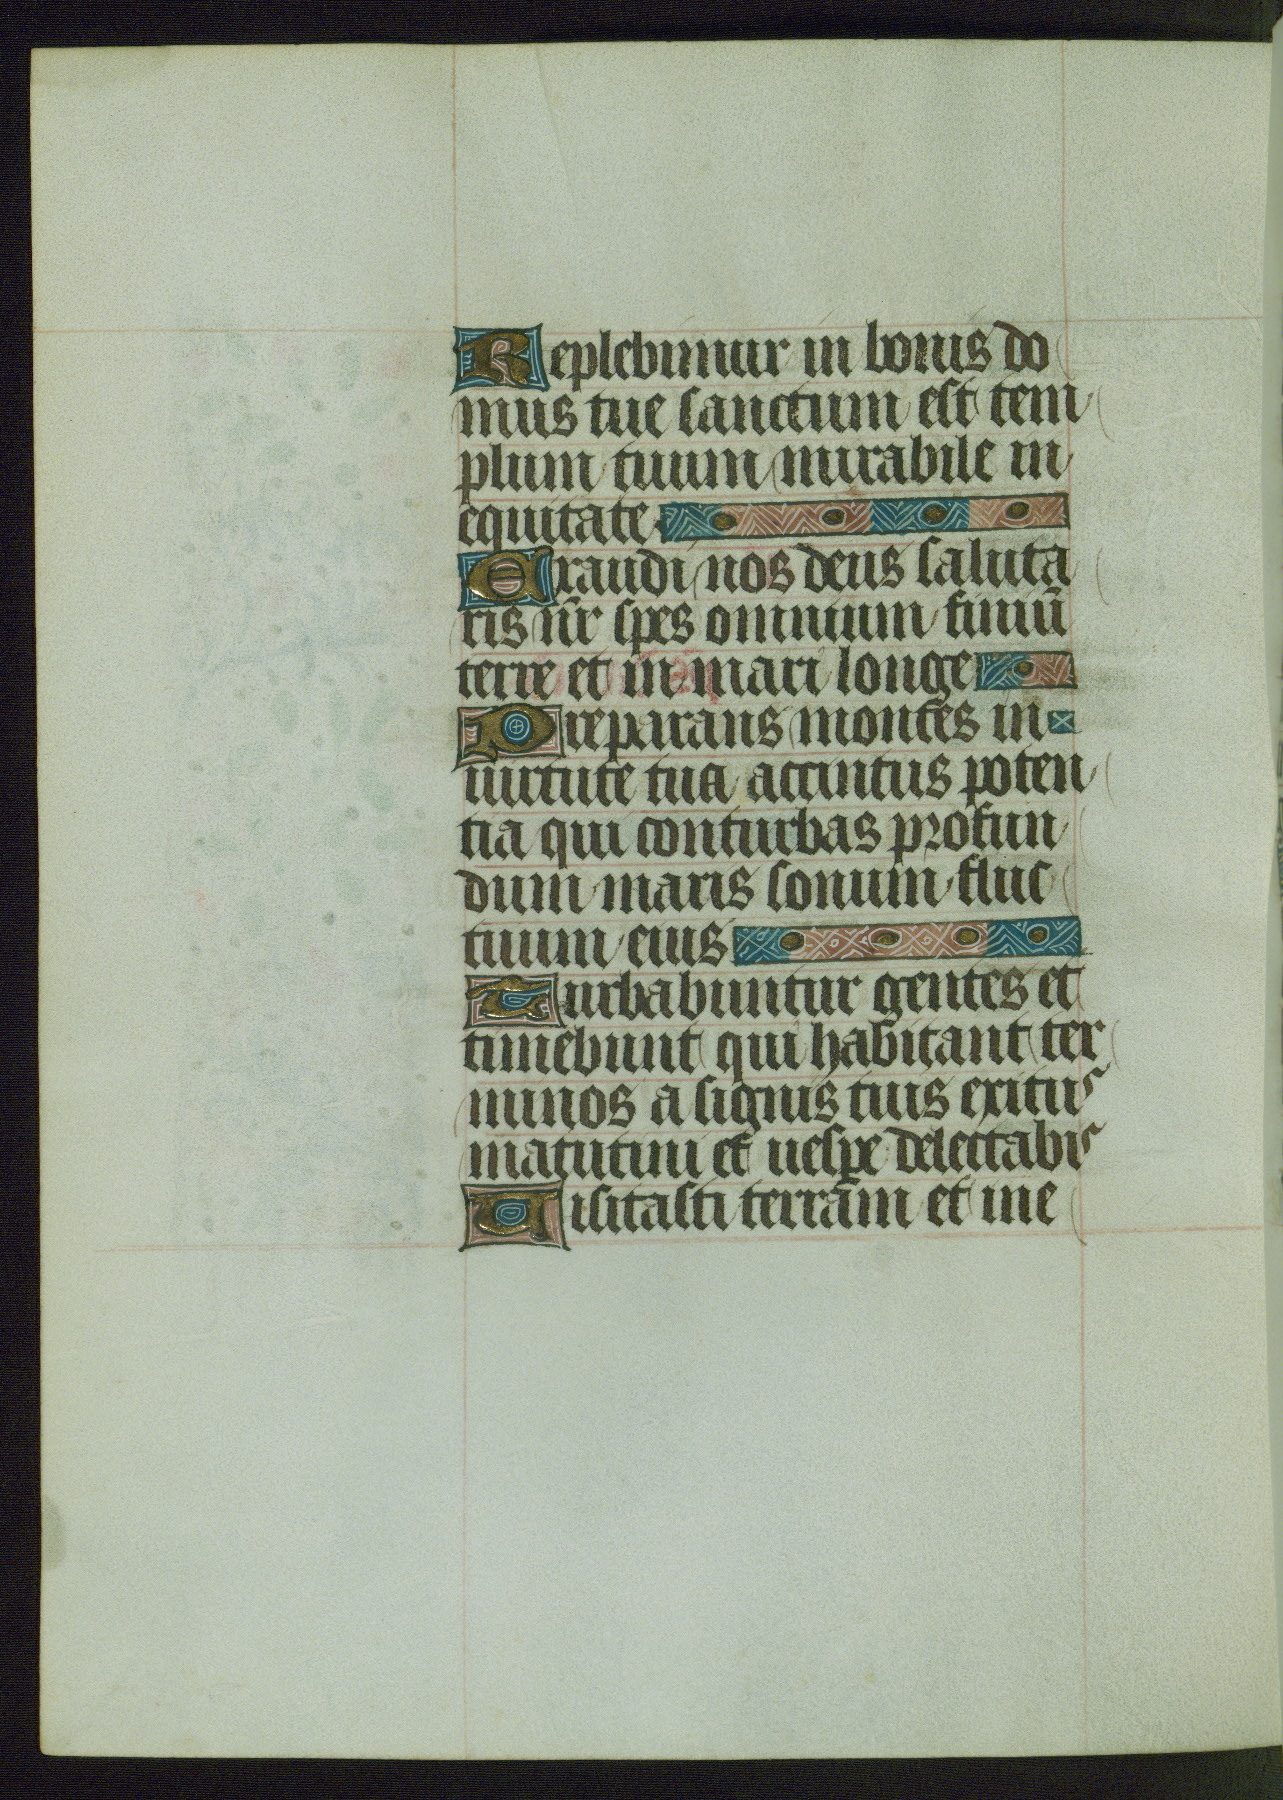 Replebimur in bonis do
mus tue sanctum est tem
plum tuum mirabile in
equitate
Exaudi nos deus saluta
ris nr̄ spes omnium finiū
terre et in mari longe
Preparans montes in
uirtute tua accintus poten
tia qui conturbas profun
dum maris sonum fluc
tuum eius
Turbabuntur gentes et
timebunt qui habitant ter
minos a signis tuis exitus
matutini et uespe delectabis
Uisitasti terram et ine